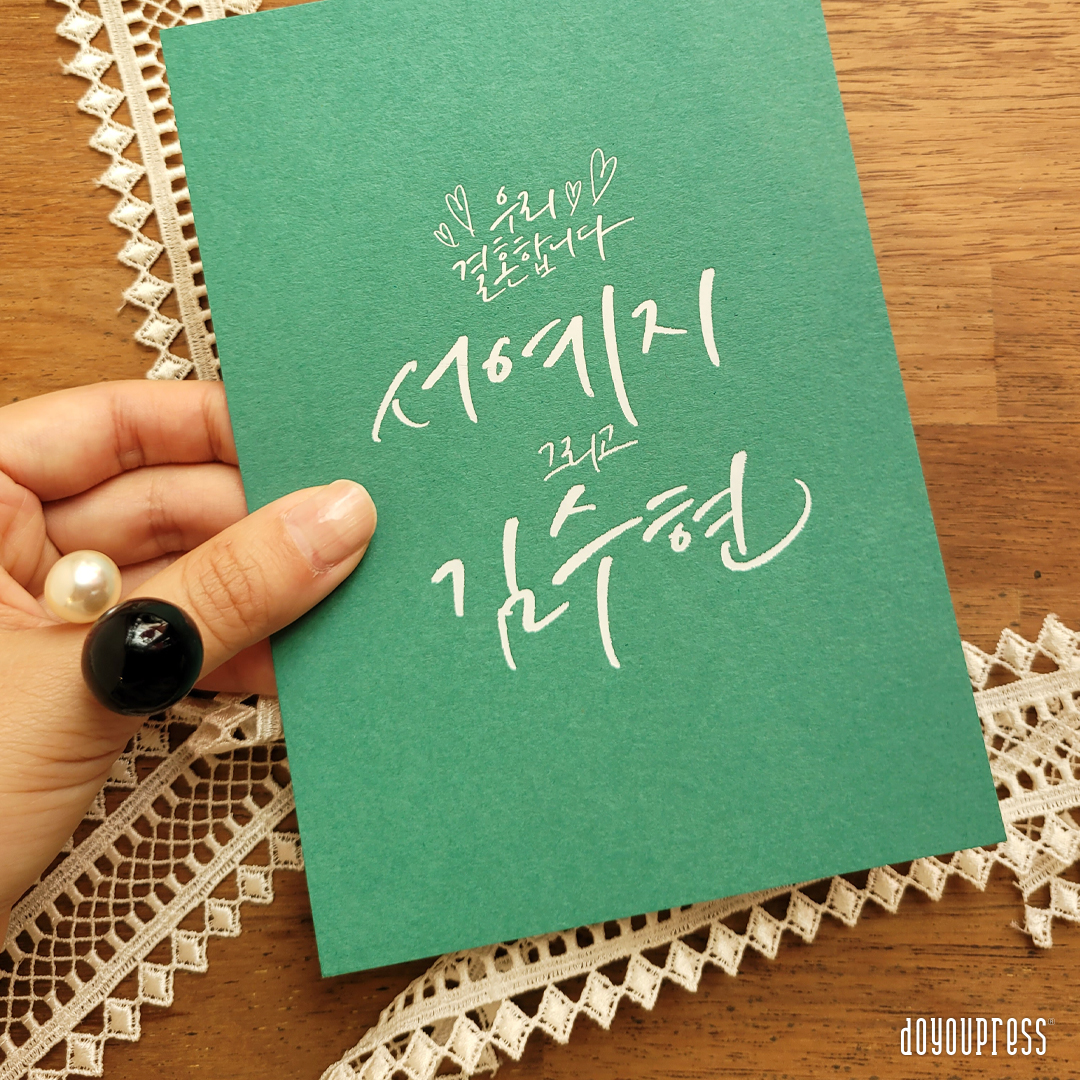 우리
결혼합니다
서예지
그리고
김수현
doyoupress®